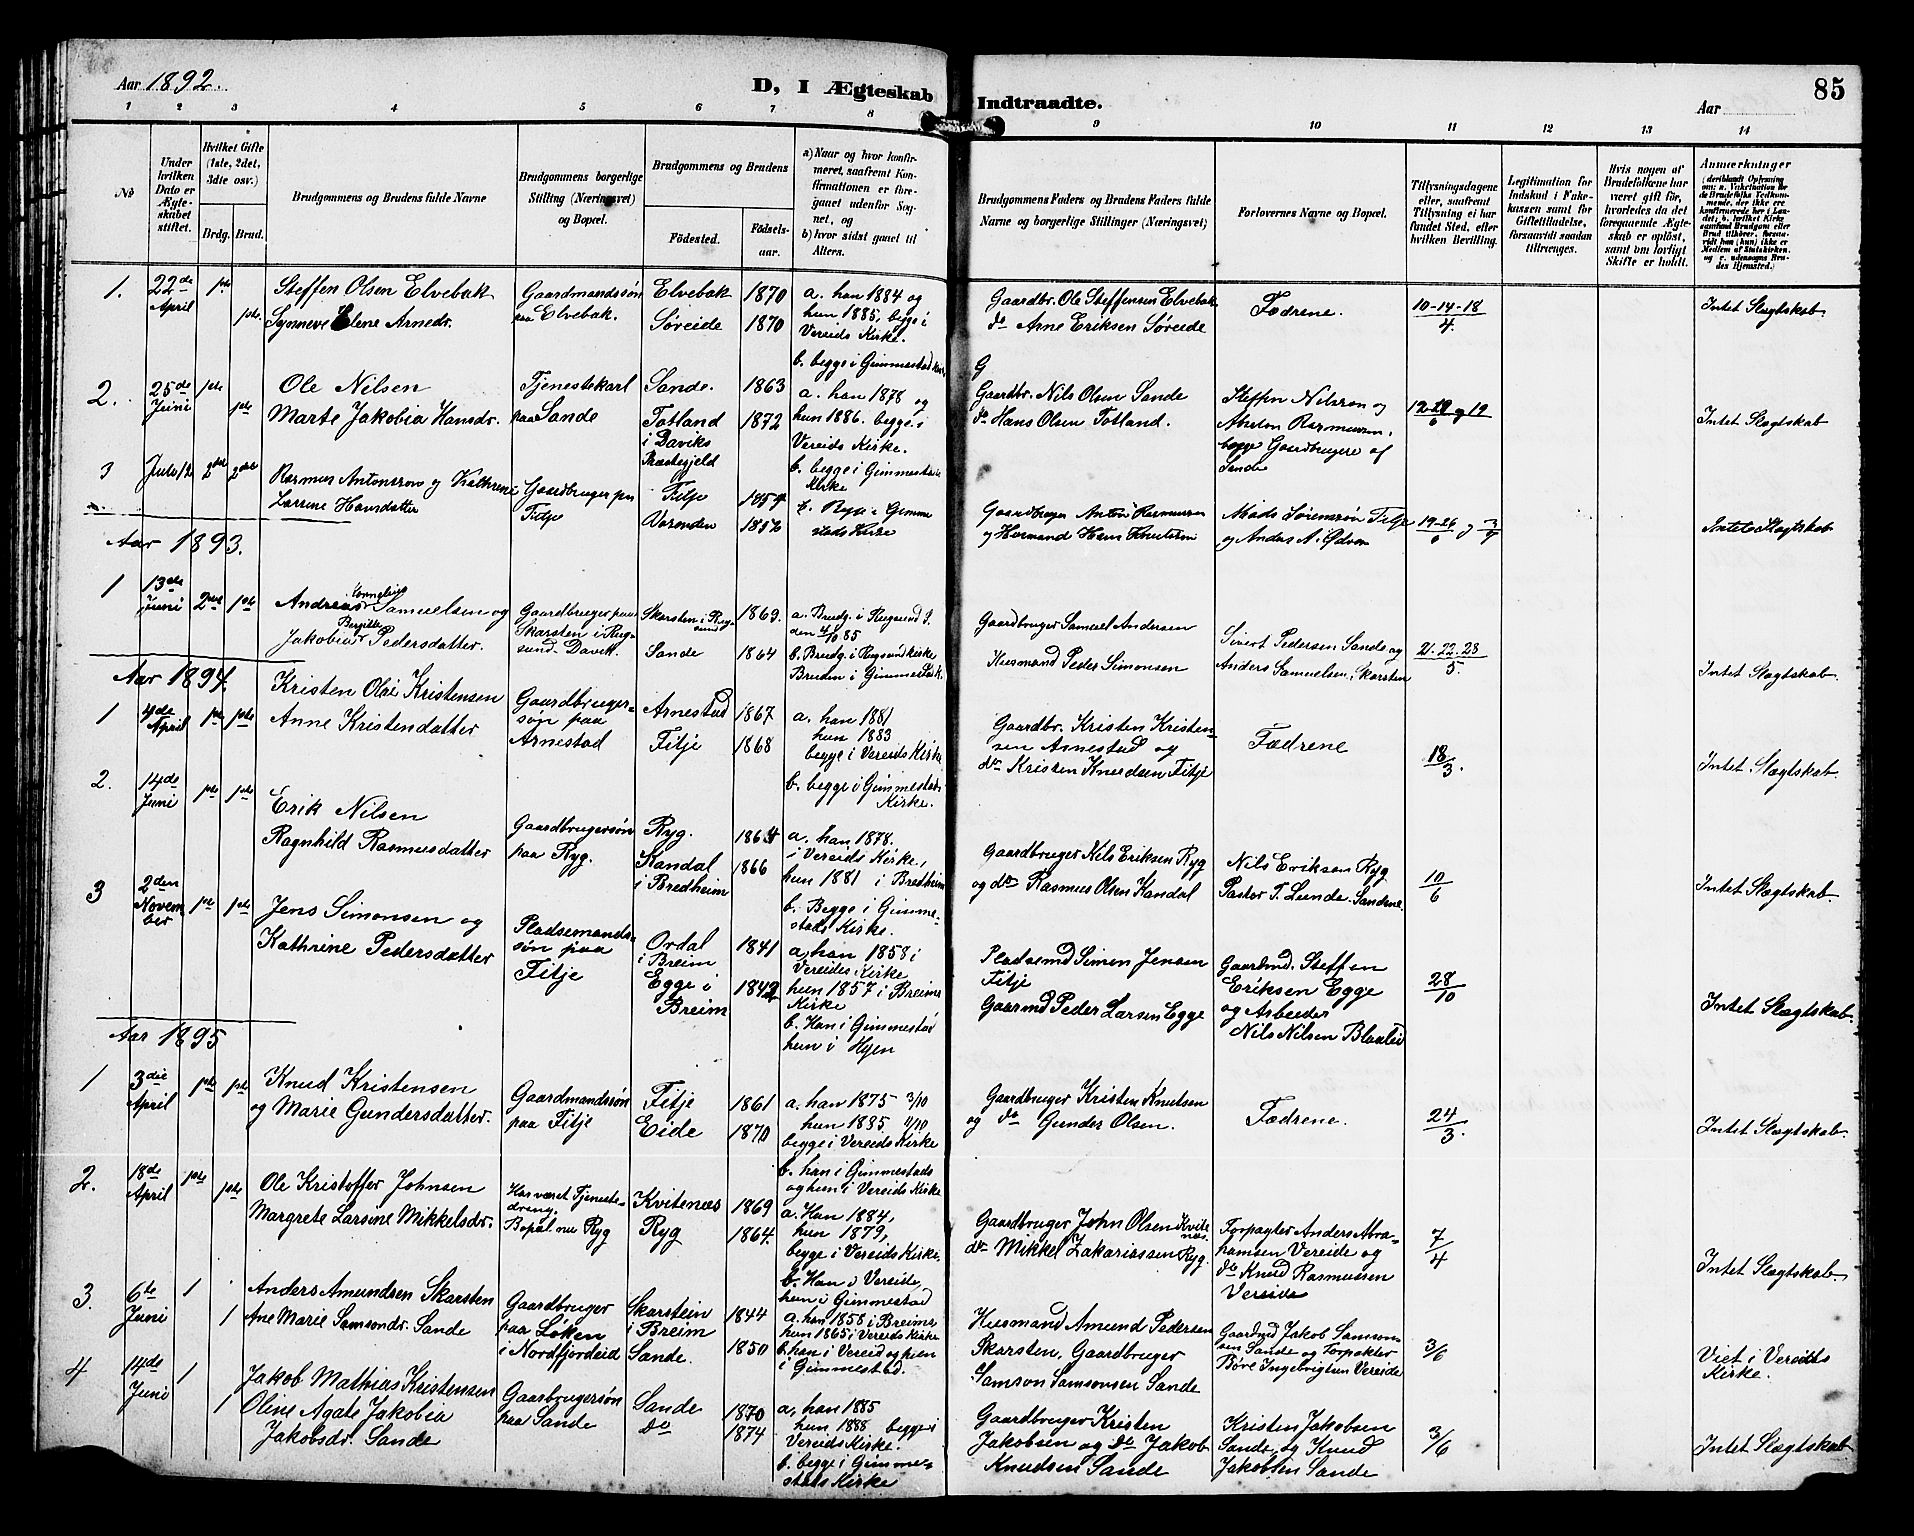 Aar 1892.
D, I Ægteskab Indtraadte.
Aar
85
1 2 3 4 5 6 7 8 9 10 11 12 13 14
No
Under hvilken Dato er Ægteskabet stiftet.
Hvilket Gifte (1ste, 2det, 3die osv.)
Brdg. Brud.
Brudgommens og Brudens fulde Navne
Brudgommens borgerlige Stilling (Næringsvei) og Bopæl.
Brudgommens og Brudens
Fødested.
Fødselsaar.
a) Naar og hvor konfirmeret, saafremt Konfirmationen er foregaaet udenfor Sognet, og
b) hvor sidst gaaet til Alters.
Brudgommens Faders og Brudens Faders fulde Navne og borgerlige Stillinger (Næringsvei)
Forlovernes Navne og Bopæl.
Tillysningsdagene eller, saafremt Tillysning ei har fundet Sted, efter hvilken Bevilling.
Legitimation for Indskud i Fakekassen samt for Giftetilladelse, forsaavidt saadan tiltrænges.
Hvis nogen af Brudefolkene har været gift før, hvorledes da det foregaaende Ægteskab er opløst, samt om lovligt Skifte er holdt.
Anmærkninger
1. 22de April 1ste
1ste
Steffen Olsen Elvebak
Synneve Elene Arnedr.
Gaardmandssøn
paa Elvebak.
Elvebak 1870
Søreide 1870
a. han 1884 og
hun 1885, begge i
Vereids Kirke.
b. begge i Gimmestad Kirke
Gaardbr. Ole Steffensen Elvebak
do Arne Eriksen Søreide
Fædrene.
10-14-18
4
Intet Slægtskab.
2. 25de Juni 1ste
1ste
Ole Nilsen
Marte Jakobia Hansdr.
Tjenestekarl
paa Sande
Sande. 1863
Totland 1872
i Daviks
Præstegjeld
a. han 1878 og
hun 1886. begge i
Vereids Kirke.
b. begge i Gimmestads
Kirke
G
Gaardbr. Nils Olsen Sande
do Hans Olsen Totland.
Steffen Nilsson og
Rasmussen,
begge Gaardbrugere af
Sande
og 19
6
Intet Slægtskab
3 Juli 12 2det 2det
Rasmus Antonsson og Kathrine
Larsine Hansdatter
Gaardbruger paa
Fitje
Fitje
a. Begge i Gimme
stads Kirke
Gaardbruger Anton Rasmussen
og Husmand Hans Knutsen
Mads Sørenssøn Fitje
og Anders A.
19-26 og 3
6 7
Intet Slægtskab
Aar 1893.
1 13de Juni 2det 1ste
Andreas Kornelius Samuelsen og
Jakobia Bergitte Pedersdatter.
Gaardbruger paa
Skarsten i Rug-
sund. Davik.
Skarsten i Rug-
sund 1863.
Sande 1864
a. Brudg. i Rugsund
den 4/10 85
b. Brudg. i Rugsund kirke
Bruden i Gimmestad K.
Gaardbruger Samuel Andersen
Husmand Peder Simonsen
Sivert Pedersen Sande og
Anders Samuelsen, Skarsten
21. 22. 23
5.
Intet Slægtskab.
Aar 1894.
1 4de April 1ste 1ste
Kristen Olai Kristensen
Anne Kristendatter
Gaardbruger-
søn paa
Arnestad
Arnestad 1867
Fitje 1868
a. han 1881
hun 1883
begge i Vereids Kirke
b. begge i Gimmestads
Kirke.
Gaardbr. Kristen Kristen-
sen Arnestad og
do Kristen Knudsen Fitje
Fædrene
18
3.
Intet Slægtskab.
2. 14de Juni 1ste 1ste
Erik Nilsen
Ragnhild Rasmusdatter
Gaardbrugersøn
paa Ryg.
Ryg. 1864
Kandal 1866
i Bredheim
a. han 1878.
i Vereids Kirke,
hun 1881 i Bredheim
b. Begge i Gimme-
stads Kirke.
Gaardbruger Nils Eriksen Ryg
og do Rasmus Olsen Kandal
Nils Eriksen Ryg
Pastor T. Lunde. Sandene.
10
6
Intet Slægtskab.
3 2den Novem
ber 1ste 1ste
Jens Simonsen og
Kathrine Pedersdatter
Pladsemands-
søn paa
Fitje
Ordal 1841
i Breim
Egge i 1842
Breim
a, han 1858 i
Vereids, Kirke
hun 1857 i Breims
Kirke
b. Han i Gimmestad
hun i Hyen
Pladsemd Simon Jensen
Fitje
Gaarmd Peder Larsen Egge
Gaardmd. Steffen
Eriksen Egge
og Arbeider
Nils Nilsen Blaalid
28
10
Intet Slægtskab.
Aar 1895
1 3die April 1ste 1ste
Knud Kristensen
og Marie Gundersdatter.
Gaardmandssøn
paa Fitje
Fitje 1861
Eide 1870
a. han 1875 3/10
hun 1885 4/10
begge i Vereids Kirke
b. han i Gimmestads
og hun i Vereids Kirke
Gaardbruger Kristen Knutsen
og do Gunder Olsen.
Fædrene.
24
3.
Intet Slægtskab.
2. 18de April 1ste
1ste
Ole Kristoffer Johnsen
Margrete Larsine Mikkelsdr.
Har været Tjeneste-
dreng.
Bopæl nu Ryg
Kvitenæs 1869
Ryg 1864.
a. Han 1884,
hun 1879,
begge i Vereids Kirke.
b. Han i Vereide,
hun i Gimmestad
Gaardbruger John Olsen Kvite
næs.
do Mikkel Zakariassen Ryg.
Forpagter Anders Abra-
hamsen Vereide og
do Knud Rasmussen
Vereide
7
4
Intet Slægtskab
3. 6te Juni 1
1
Anders Amundsen Skarsten
Ane Marie Samsondr. Sande
Gaardbruger
paa Løken
i Nordfjordeid
Skarstein 1844
i Breim
Sande. 1850
a. han 1858 i Breims
hun 1865 i Vereids Kirke
b. han i Vereid og hun
i Gimmestad.
Husmand Amund Pedersen
Skarsten, Gaardbruger
Samson Samsonsen Sande
Gaardmd Jakob Samson-
sen Sande og Forpakter
Børe Ingebrigtsen Vereide
3/6
Viet i Vereids
Kirke.
4 14de Juni 1
1
Jakob Mathias Kristensen
Oline Agate Jakobia
Jakobsdr. Sande
Gaarbrugersøn
paa Sande
Sande 1870
do 1874
a, han 1885
hun 1888 begge i
Vereids Kirke.
b. begge i Gimme-
stads Kirke
Gaardbruger Kristen
Jakobsen og do Jakob
Knudsen Sande
Kristen Jakobsen
Sande og Knud
Jakobsen Sande
3/6
Intet Slægtskab